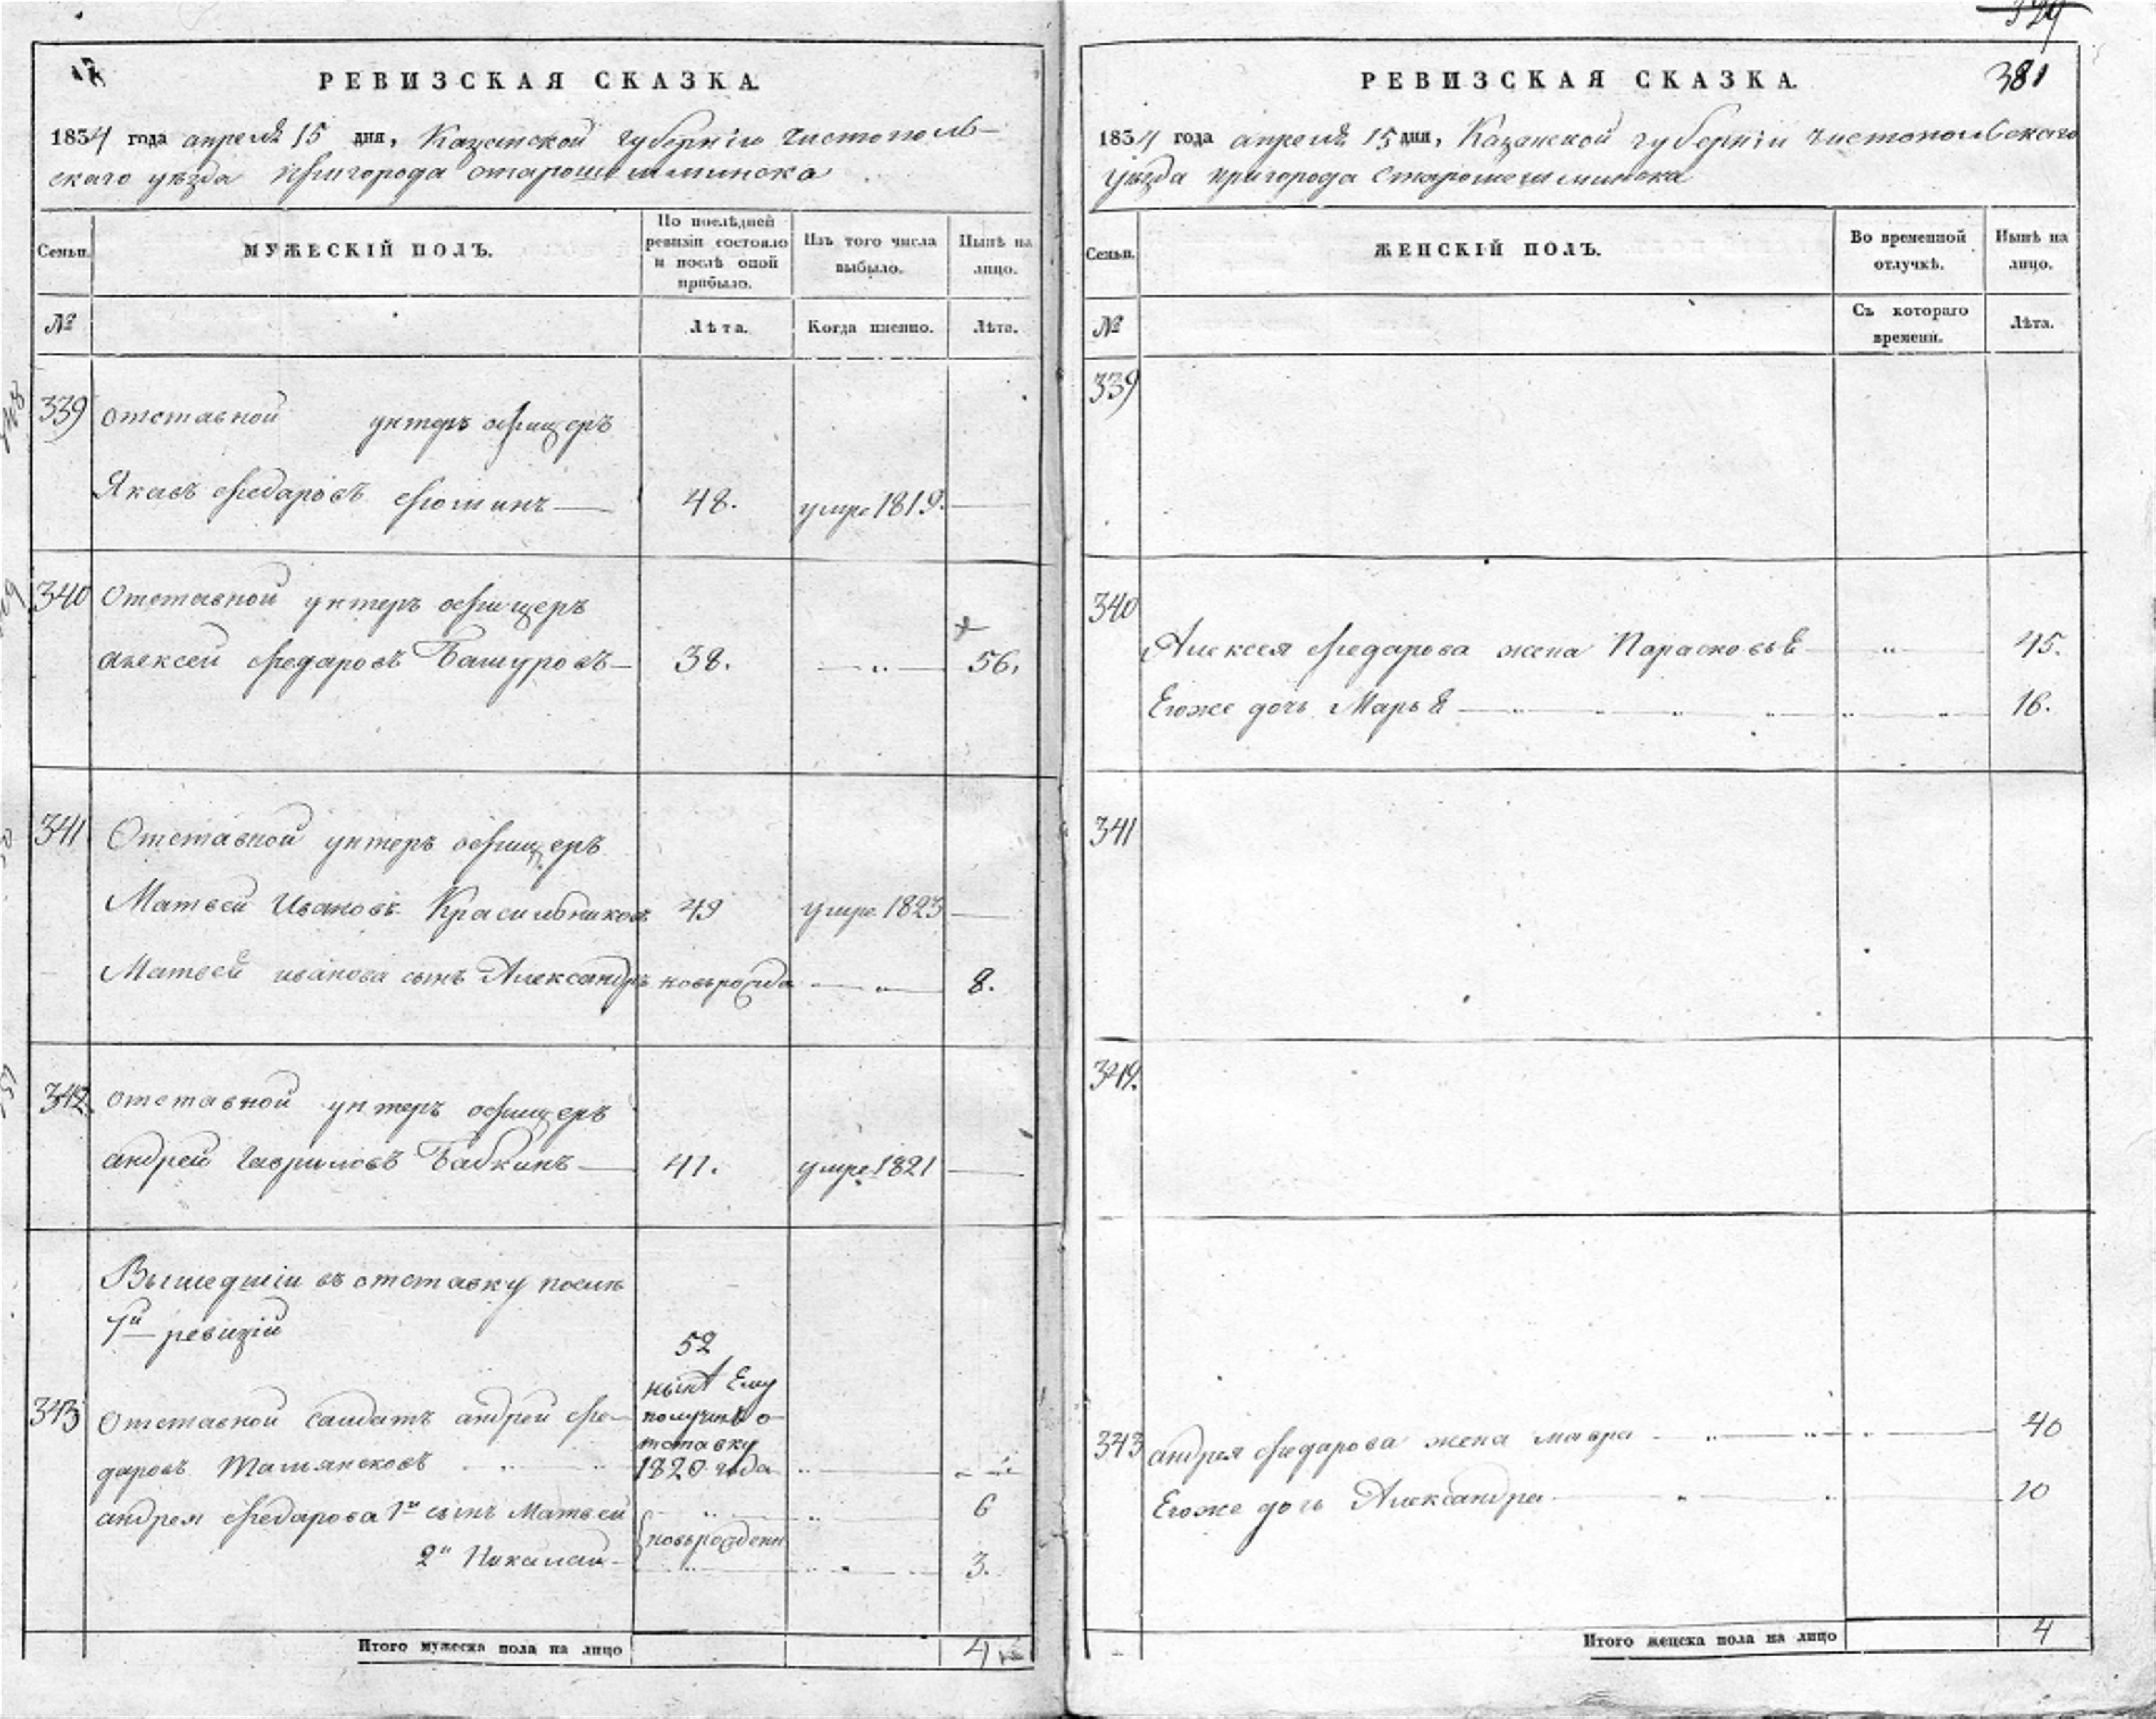 РЕВИЗСКАЯ СКАЗКА
1834 года апреля 15 дня, Казанской губернiи чистополь-
скаго уѣзда пригорода старошешминска
Семьи.
МУЖЕСКІЙ ПОЛЪ.
По послѣдней ревизіи состояло и послѣ оной прибыло.
Изъ того числа выбыло.
Нынѣ на лицо.
№
Лѣта.
Когда именно.
Лѣта.
339 отставной унтеръ офицеръ
Яковъ Федаровъ 48. умре 1819.
340 Отставной унтеръ офицеръ
алексей Федаровъ Башуровъ 38. 56.
341 Отставной унтеръ офицеръ
Матвей Ивановъ Красильников 49 умре 1823
Матвей иванова сынъ Александръ новърожда 8.
342. отставной унтеръ офицеръ
андрей Гавриловъ Бабкинъ 41. умре 1821
Вышедшiи въ отставку после
7й ревизiи
52
нынѣ Ему
343 Отставной салдатъ андрей Фе- получилъ о-
даровъ тставку
1820 года
андрея Федарова 1й сынъ Матвей 6
новърождени
2й Никалаи 3.
Итого мужеска пола на лицо 4
324
381
РЕВИЗСКАЯ СКАЗКА.
1834 года апреля 15 дня, Казанской губернiи чистопольскаго
уѣзда пригорода Старошешминска
Семьи.
ЖЕНСКІЙ ПОЛЪ.
Во временной отлучкѣ.
Нынѣ на лицо.
№
Съ котораго времени.
Лѣта.
339
340
Алексея Федарова жена Парасковья 45.
Егоже дочь Марья 16.
341
342.
343 андрея Федарова жена мавра 40
Егоже дочь Александра 10
Итого женска пола на лицо 4